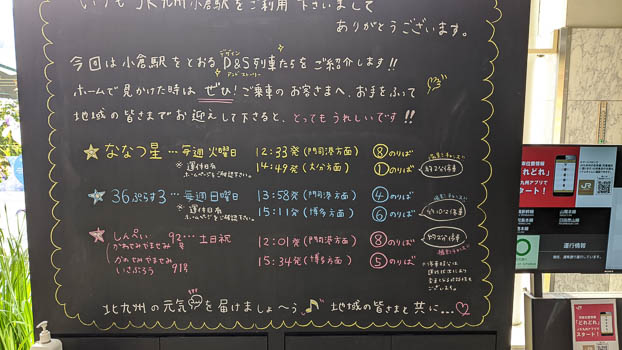 いつもJR九州小倉駅をご利用下さいまして
ありがとうございます。
今回は小倉駅をとおるD&S列車たちをご紹介します!!
デザイン
アンド ストーリー
ホームで見かけた時はぜひ!ご乗車のお客さまへ、お手をふって
地域の皆さまでお迎えして下さると、とってもうれしいです!!
ななつ星…毎週 火曜日 12:33発(門司港方面) ⑧のりば
※運休日有 ホームページをご確認下さい。 14:49発(大分方面) ①のりば
36ぷらす3…毎週日曜日 13:58発(門司港方面) ④のりば
※運休日有 ホームページをご確認下さい。 15:11発(博多方面) ⑥のりば
かんぱち
かわせみやませみ 92号…土日祝 12:01発(門司港方面) ⑧のりば
かわせみやませみ
いさぶろう 91号 15:34発(博多方面) ⑤のりば
撮影チャンス
北九州の元気を届けましょ〜う♪地域の皆さまと共に…♡
「どれどれ」
JR九州アプリで
スタート!
運行情報
「どれどれ」
スタート!